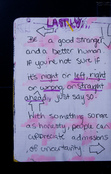 LASTLY...
Be a good stranger
and a better human
If you're not sure if
its right or left, right
or wrong or straight
ahead, just say so
With something some
as honestly, people can
appreciate admissions
of uncertainty